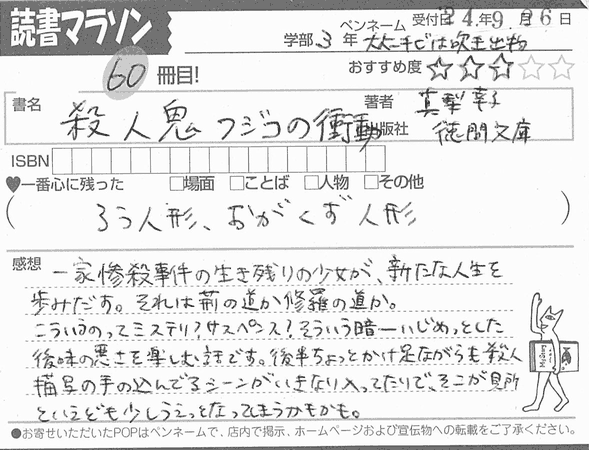 読書マラソン
ペンネーム 受付日'24.年9.月26日
学部 3 年 は吹き出物
60 冊目! おすすめ度 ☆☆☆☆☆
書名 殺人鬼フジコの衝動
著者 真梨幸子
出版社 徳間文庫
ISBN
♥一番心に残った □場面 □ことば □人物 □その他
( ろう人形、おがくず人形 )
感想
一家惨殺事件の生き残りの少女が、新たな人生を
歩みだす。それは荊の道か修羅の道か。
こういうのってミステリ?サスペンス?そういう暗ーいじめっとした
後味の悪さを楽しむ話です。後半ちょっとかけ足ながらも殺人
描写の手の込んでるシーンがいきなり入ってたりで、そこが見所
といえども少しうえっとなってしまうかもかも。
●お寄せいただいたPOPはペンネームで、店内で掲示、ホームページおよび宣伝物への転載をご了承ください。